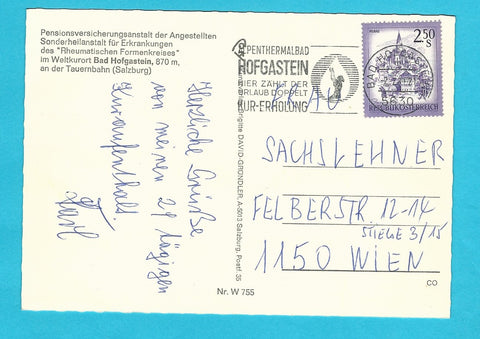 Pensionsversicherungsanstalt der Angestellten
Sonderheilanstalt für Erkrankungen
des "Rheumatischen Formenkreises"
im Weltkurort Bad Hofgastein, 870 m,
an der Tauernbahn (Salzburg)
Herzliche Grüße
von meinen 29 tägigen
Kuraufenthalt
Karl
Brigitte DAVID-GRÜNDLER, A-5013 Salzburg, Postf. 35
Nr. W 755
PENTHERMALBAD
HOFGASTEIN
HIER ZÄHLT DER
URLAUB DOPPELT
KUR-ERHOLUNG
2.50
S
BAD HOFGASTEIN
5630
REPUBLIK ÖSTERREICH
FRAU
SACHSLEHNER
FELBERSTR 12-14
STIEGE 3/15
1150 WIEN
CO